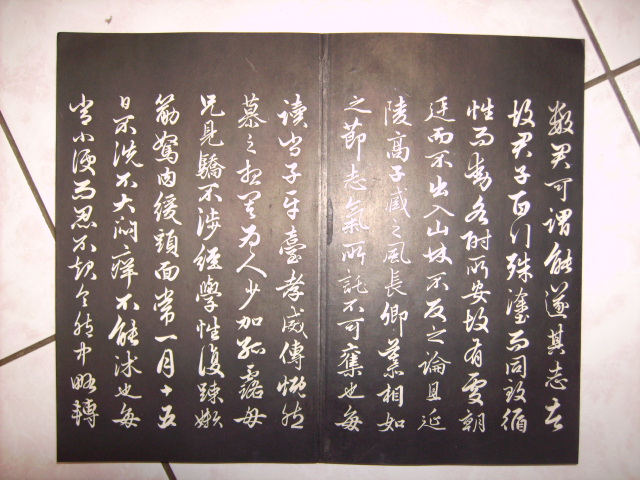 數君可謂能遂其志者
故君子百行殊塗而同致循
性而動各附所安故有處朝
廷而不出入山林不反之論且延
陵高子臧之風長卿慕相如
之節志氣所託不可奪也每
讀尚子平臺孝威傳慨然
慕之想其為人少加孤露母
兄見驕不涉經學性復疎嬾
筋駑肉緩頭面常一月十五
日不洗不大悶癢不能沐也每
當小便而忍不起令胞中略轉